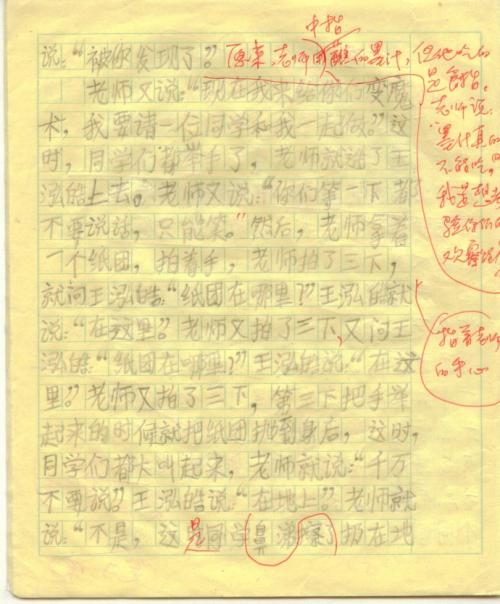 中指
说：“被你发现了？”原来，老师用蘸的墨汁，但他吃的
是食指。
老师说：
墨汁真的
不能吃，
我是想考
验你们的
老师又说：“现在我来给你们变魔
术，我要请一位同学和我一起做。”这
时，同学们都举手了，老师就选了王
泓皓上去。老师又说：“你们等一下都
不要说话，只能笑。”然后，老师拿着
一个纸团，拍着手，老师拍了三下，
就问王泓皓：“纸团在哪里？”王泓皓就
说：“在这里。”老师又拍了三下，又问王
泓皓：“纸团在哪里？”王泓皓说：“在这
里。”老师又拍了三下，第三下把手举
起来的时候就把纸团扔到身后，这时，
同学们都大叫起来，老师就说：“千万
不要说。”王泓皓说：“在地上。”老师就
说：“不是，这是同学鼻涕擦了扔在地
指着老师
的手心